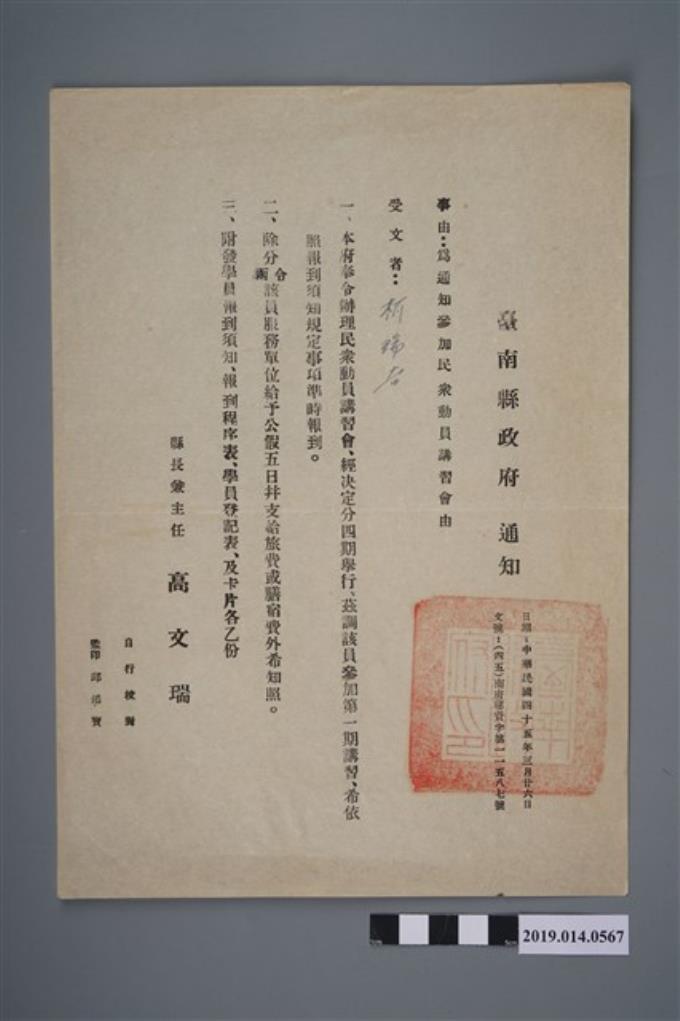 臺南縣政府 通知
日期：中華民國四十五年三月廿六日
文號：(四五)南府動資字第一一五八七號
事由：為通知參加民衆動員講習會由
受文者：
一、本府奉令辦理民衆動員講習會、經決定分四期舉行、茲調該員參加第一期講習、希依
照報到須知規定事項準時報到。
二、除分令函該員服務單位給予公假五日幷支給旅費或膳宿費外希知照。
三、附發學員報到須知、報到程序表、學員登記表、及卡片各乙份
縣長兼主任 高文瑞
自行校對
監印 邱
2019.014.0567